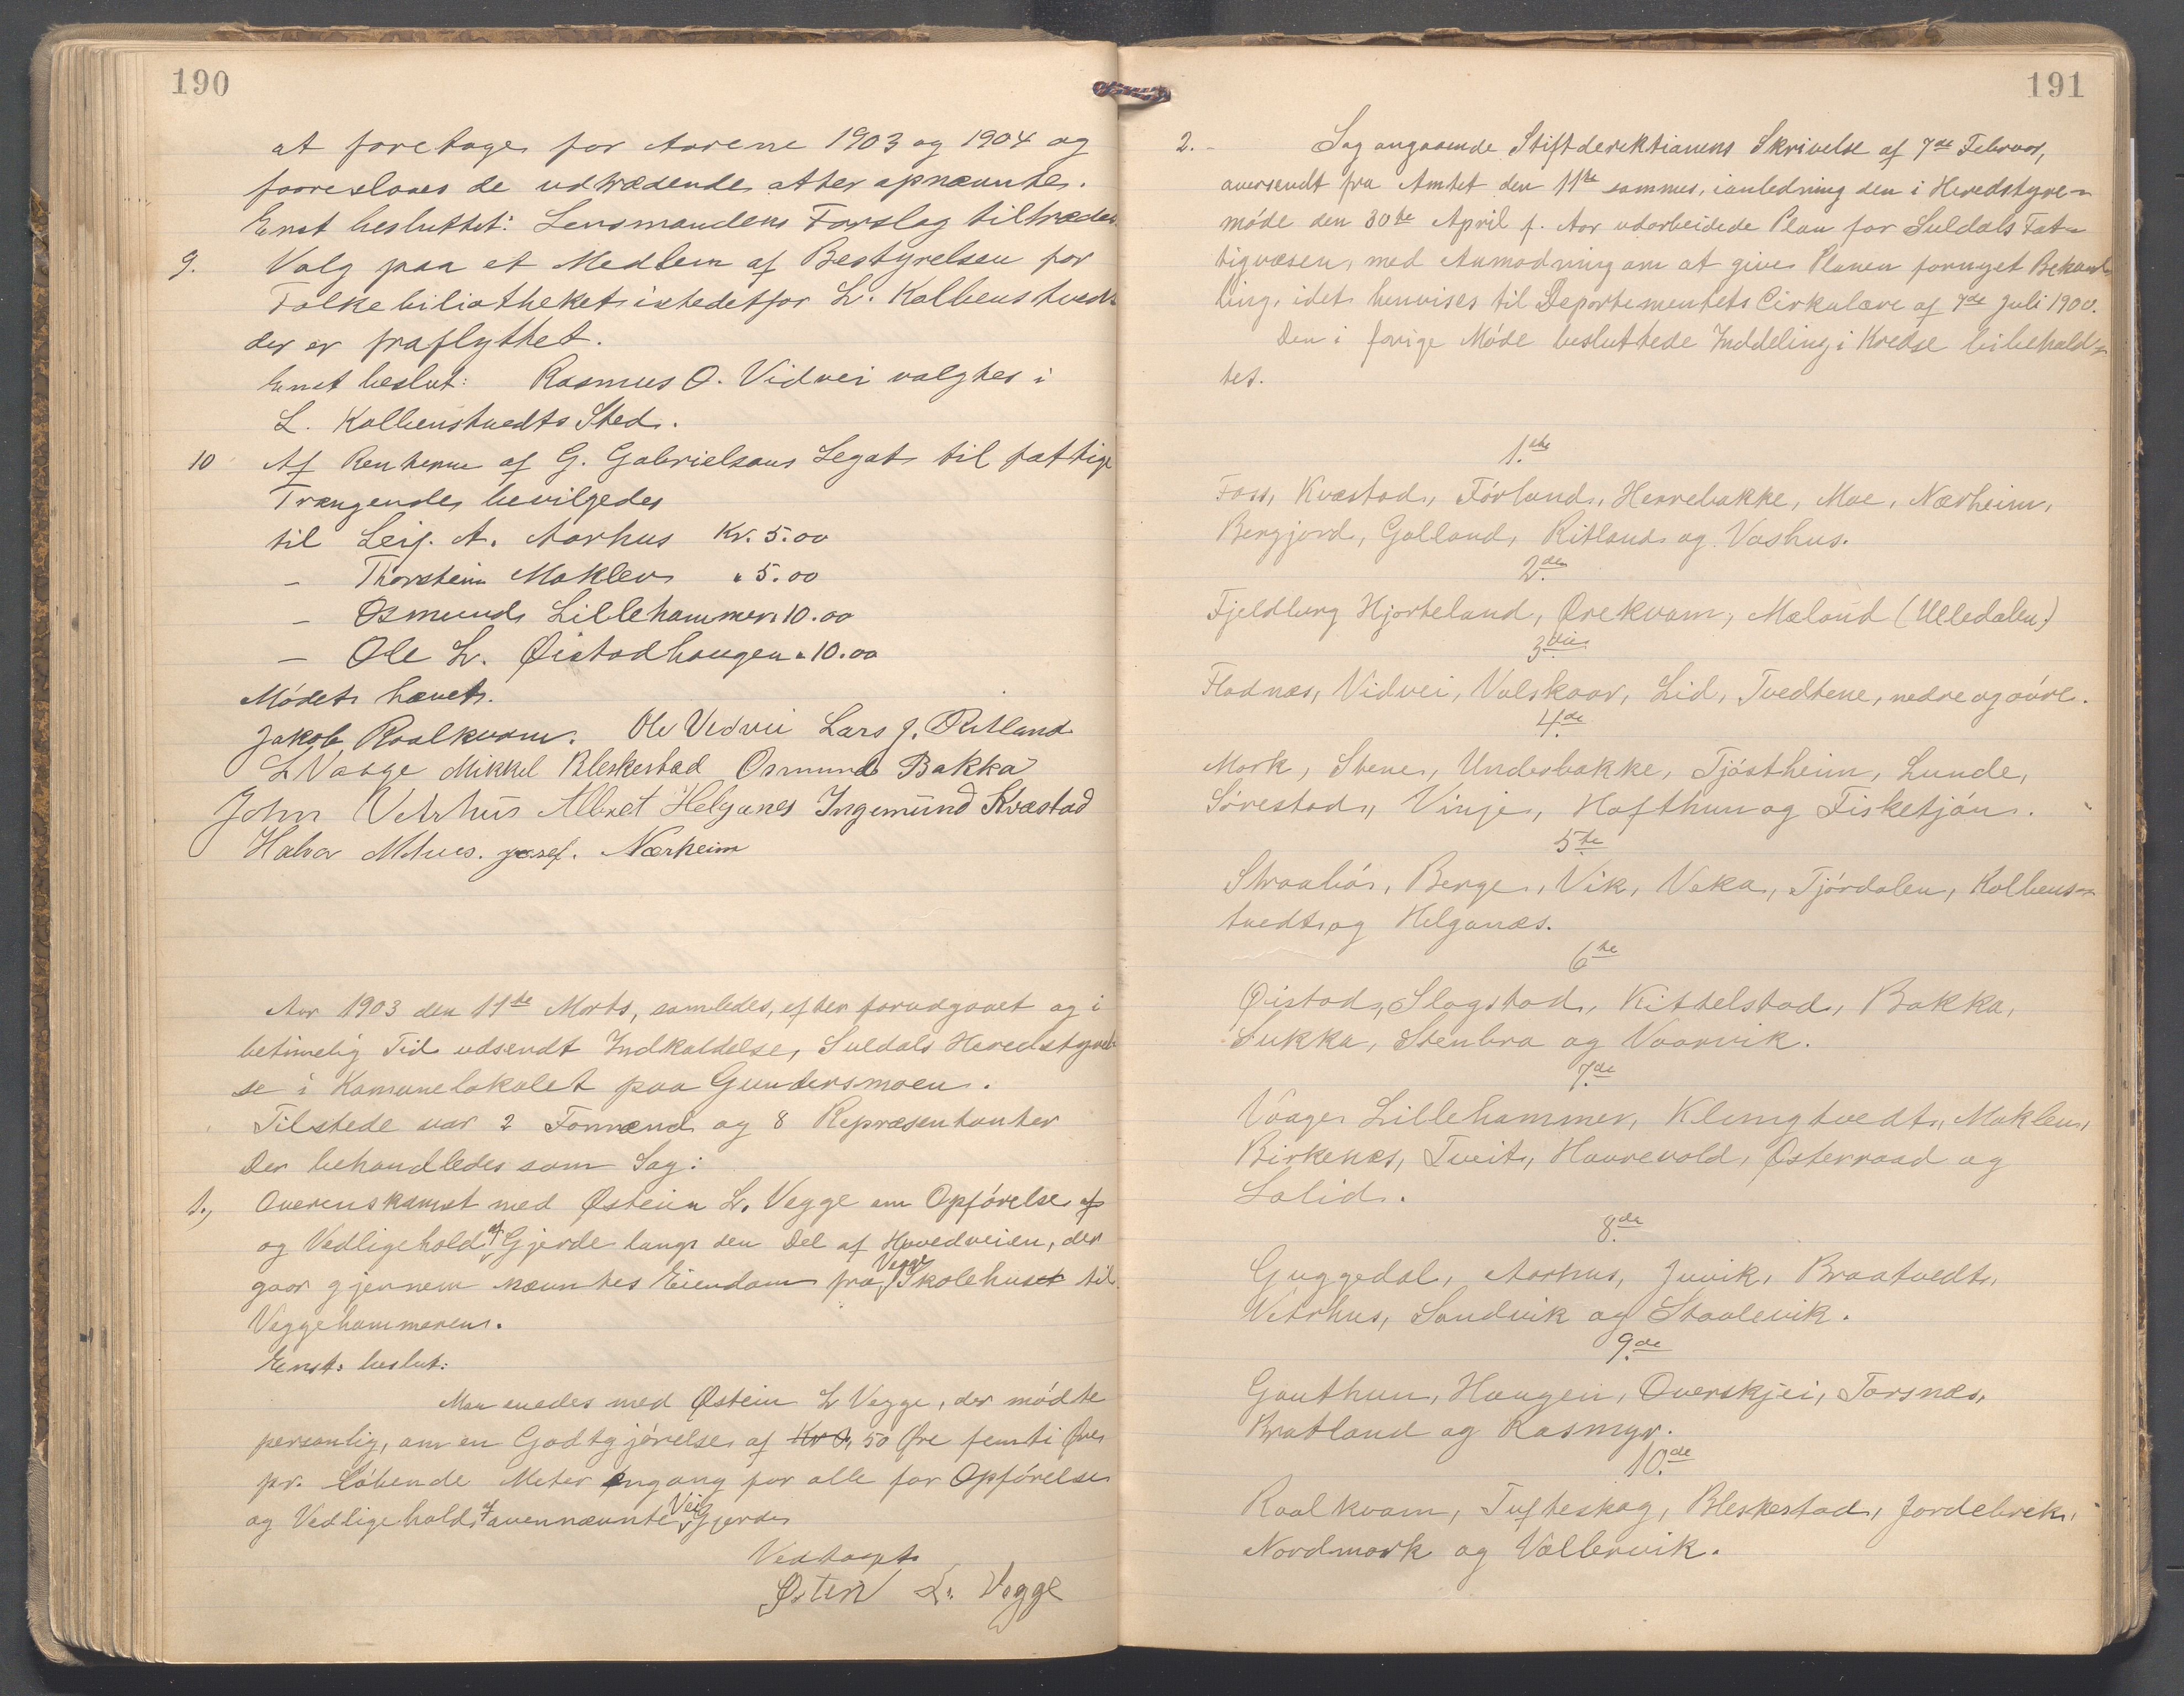 190
at foretage for Aarene 1903 og 1904 og
fooreslaaes de udtrædende atter opnævnte.
Enst besluttet: Lensmandens Forslag tiltrædes.
9. Valg paa et Medlem af Bestyrelsen for
Folkebiliotheket istedetfor L. Kolbenstvedt
der er fraflyttet.
Enst beslut: Rasmus O. Vidvei valgtes i
L. Kolbenstvedts Sted.
10 Af Renterne af G. Gabrielsens Legat til fattige
Trængende bevilgedes
til Leif. A. Aarhus Kr. 5.00
- Thorstein Moklev " 5.00
- Osmund Lillehammer 10.00
- Ole L. Øistadhaugen " 10.00
Mödet hævet.
Jakob Roalkvam. Ole Vidvei Lars J. Ritland
L Vaage Mikkel Bleskestad Osmund Bakka
John Vetrhus Albret Helganes Ingemund Kvæstad
Halvor Josef. Nærheim
Aar 1903 den 11te Marts, samledes, efter forudgaaet og i
betimelig Tid udsendt Indkaldelse, Suldals Heredstyrel-
se i Komunelokalet paa Gundersmoen.
Tilstede var 2 Formænd og 8 Repræsentanter
Der behandledes som Sag:
1., Overenskomst med Østein L. Vegge om Opförelse af
og Vedligehold af Gjerde langs den Del af Hovedveien, der
gaar gjennem nævntes Eiendom fra Vegge Skolehuset til
Veggehammeren.
Enst. beslut:
Man enedes med Østein L Vegge, der mödte
personlig, om en Godtgjörelse af Kr 0, 50 Øre femti Øre
pr. Löbende Meter engang for alle for Opförelse
og Vedligehold af ovennævnte Vei Gjerde
Vedtaget
Østen L. Vegge
191
2. - Sag angaaende Stiftderektionens Skrivelse af 7de Februar,
oversendt fra Amtet den 11te sammes, ianledning den i Heredstyre-
möde den 30te April f. Aar udarbeidede Plan for Suldals Fat-
tigvæsen, med Anmodning om at give Planen fornyet Behand-
ling, idet henvises til Departementets Cirkulære af 7de Juli 1900.
Den i forige Möde besluttede Inddeling i Kredse bibehold-
tes.
1.ste
Foss, Kvæstad, Förland, Herrebakke, Moe, Nærheim,
Bergjord, Galland, Ritland og Vashus.
2.den
Fjeldberg Hjorteland, Ørekvam, Mæland (Ulledalen.)
3.die
Fladnæs, Vidvei, Valskaar, Lid, Tvedtene, nedre og övre.
4.de
Mork, Stene, Underbakke, Tjöstheim, Lunde,
Sörestad, Vinje, Hafthun og Fisketjön.
5te
Straabö, Berge, Vik, Veka, Tjördalen, Kolbens-
tvedt og Helganæs.
6te
Øistad, Slagstad, Kittelstad, Bakka,
Sukka, Stenbra og Vaarvik.
7.de
Vaage Lillehammer, Klungtvedt, Moklev,
Birkenes, Tveit, Havrevold, Østerraad og
Solid.
8.de
Guggedal, Aarhus, Juvik, Braatvedt,
Vetrhus, Sandvik og Staalevik.
9.de
Gauthun, Haugen, Overskjei, Torsnæs,
Bratland og Rasmyr.
10.de
Roalkvam, Tufteskog, Bleskestad, Jordebrek,
Nordmork og Vallervik.